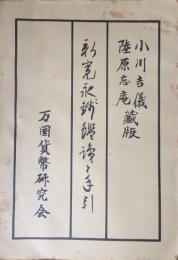 小川吉儀
陸原忘庵蔵版
新寛永銭鑑識と手引
万国貨幣研究会